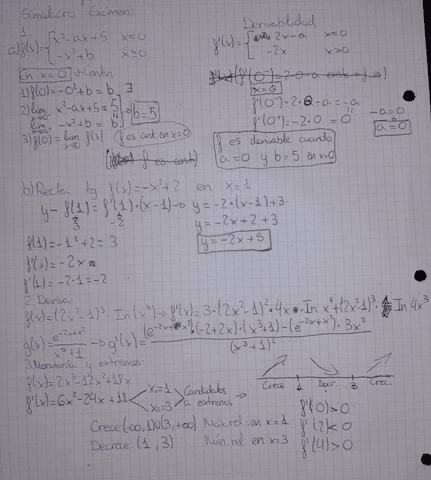 Simulacro Examen:
1.
a) f(x) = { x² - ax + 5 x<0
-x² + b x≥0
En x=0 → Contin
1) f(0) = -0² + b = b, ∃
2) lim x² - ax + 5 = 5
lim -x² + b = b
b = 5
3) f(0) = lim f(x) f es cont en x=0
Derivabilidad
f'(x) = { 2x - a x<0
-2x x>0
x=0
f'(0⁻) = 2·0 - a = -a
f'(0⁺) = -2·0 = 0
-a = 0
a = 0
f es derivable cuando
a = 0 y b = 5 en x=0
b) Recta tg f(x) = -x² + 2 en x = 1
y - f(1) = f'(1)·(x-1) → y = -2·(x-1)+3
3 -2
y = -2x + 2 + 3
y = -2x + 5
f(1) = -1² + 2 = 3
f'(x) = -2x
f'(1) = -2·1 = -2
2. Deriva:
f(x) = (2x²-1)³ · ln(x⁴) → f'(x) = 3·(2x²-1)²·4x · ln x⁴ + (2x²-1)³ · ln 4x³
g(x) = e^(-2x+x²) / (x³+1) → g'(x) = ((e^(-2x+x²)·(-2+2x)·(x³+1) - (e^(-2x+x²)·3x²) / (x³+1)²
3. Monotonía y extremos:
f(x) = 2x³ - 12x² + 18x
f'(x) = 6x² - 24x + 18
x₁=1
x₂=3
Candidatos
a extremos
Crece 1 Decr. 3 Crec.
Crece (-∞, 1) ∪ (3, +∞) Máx. rel.: en x = 1
Decrece: (1, 3) Mín. rel: en x = 3
f'(0) > 0
f'(2) < 0
f'(4) > 0